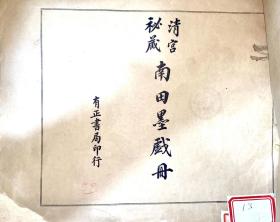 清宮
秘藏
南田墨戲冊
有正書局印行